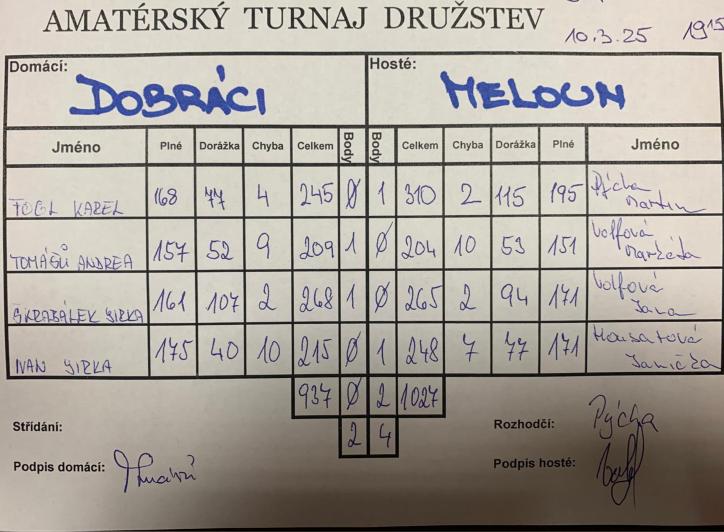 AMATÉRSKÝ TURNAJ DRUŽSTEV
10.3.25 19¹⁵
Domácí: DOBRÁCI Hosté: MELOUN
Jméno Plné Dorážka Chyba Celkem Body Body Celkem Chyba Dorážka Plné Jméno
FOGL KAREL 168 77 4 245 0 1 310 2 115 195 Pýcha Martin
TOMÁŠŮ ANDREA 157 52 9 209 1 0 204 10 53 151 Volfová Markéta
ŠKRABÁLEK JIRKA 161 107 2 268 1 0 265 2 94 171 Volfová Jana
IVAN JIRKA 175 40 10 215 0 1 248 7 77 171 Janička
937 0 2 1027
2 4
Střídání: Rozhodčí: Pýcha
Podpis domácí: Podpis hosté: